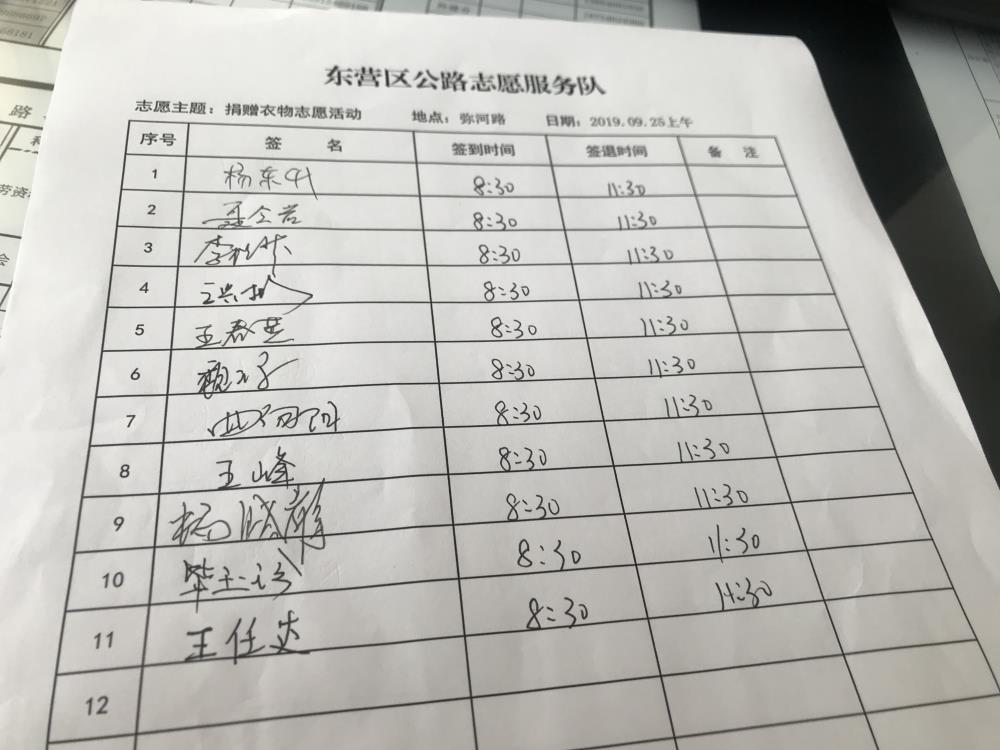 东营区公路志愿服务队
志愿主题：捐赠衣物志愿活动 地点：弥河路 日期：2019.09.25上午
序号 签 名 签到时间 签退时间 备 注
1 杨东 8:30 11:30
2 8:30 11:30
3 李 8:30 11:30
4 王兴 8:30 11:30
5 王春 8:30 11:30
6 魏 8:30 11:30
7 8:30 11:30
8 王峰 8:30 11:30
9 杨晓 8:30 11:30
10 毕 8:30 11:30
11 王任达 8:30 11:30
12